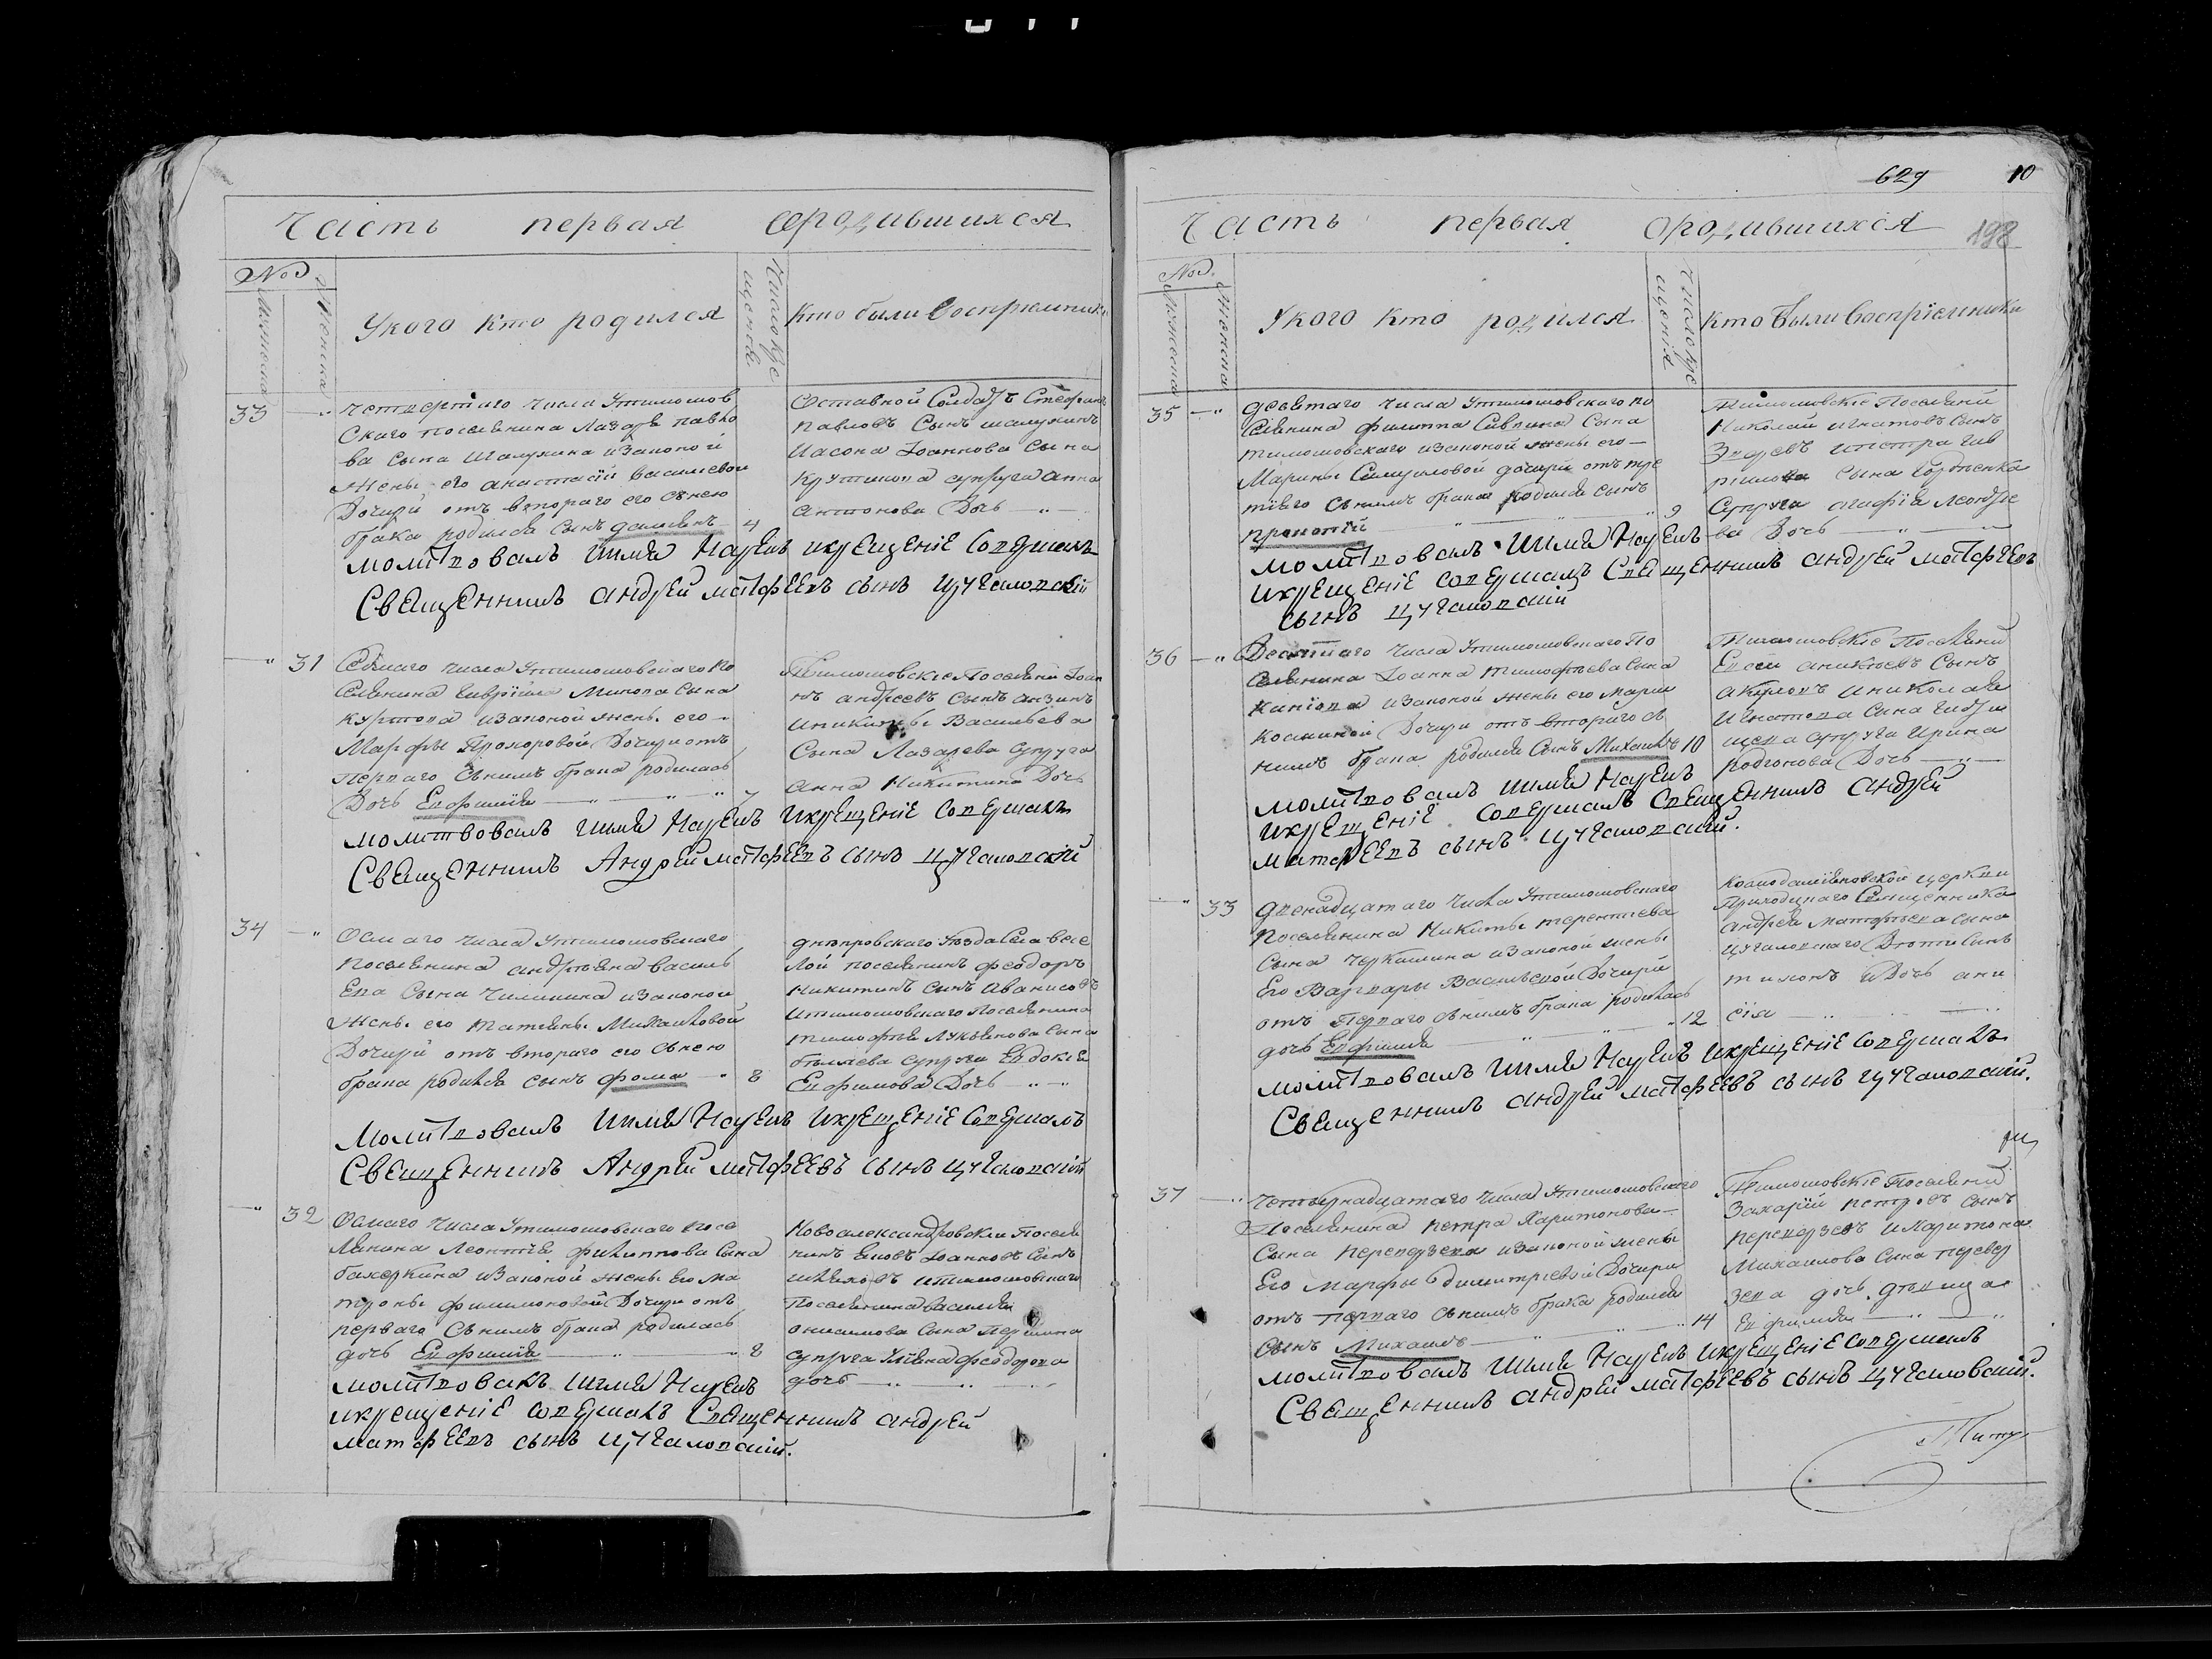 Часть первая о родившихся
№
Мужеска
Женска
У кого кто родился
Число кре
щенія
Кто были восприемники
33
Четвертаго числа У тимошов
скаго поселянина Лазаря Павло
ва сына Шалухина и законой
жены его Анастасіи Васильевой
Дочери от втораго его с нею
брака родился сынъ Дамиянъ 4
Отставной Солдатъ Стефанъ
Павловъ Сынъ Шалухинъ
Иасона Іоаннова Сына
Крутикова супруга Анна
Антонова Дочь
Молитвовалъ Имя Нареклъ и крещеніе Совершалъ
Священникъ Андрей Матфеевъ сынъ Цукаловскій
31
Седмаго числа У тимошовскаго По
селянина Гавріила Минова сына
Куртова и законой жены его
Марфы Прохоровой Дочери отъ
перваго с нимъ брака родилась
Дочь Евфимія 7
Тимошовскіе Поселяни Іоан
нъ Андреевъ сынъ
и Никиты Васильева
Сына Лазарева супруга
Анна Никитина Дочь
Молитвовалъ Имя Нареклъ и крещеніе Совершалъ
Священникъ Андрей Матфеевъ сынъ Цукаловскій
34
Осмаго числа У тимошовскаго
Поселянина Андрѣяна Василь
ева Сына Чиликина и законой
жены его Татияны Михаиловой
Дочери отъ втораго его с нею
брака родился сынъ Фома 8
Днепровскаго Уѣзда Села Весе
лой поселянинъ Феодоръ
Никитинъ Сынъ
и тимошовскаго Поселянина
Тимофея Лукьянова Сына
Бѣляева супруга Евдокія
Евфимова Дочь
Молитвовалъ Имя Нареклъ и крещеніе Совершалъ
Священникъ Андрей Матфеевъ сынъ Цукаловскій
32
Осмаго числа У тимошовскаго посе
лянина Леонтія Филиппова Сына
Бахеркина и законой жены Его Ма
троны Филимоновой Дочери отъ
перваго с нимъ брака родилась
дочь Евфимія 8
Новоалександровскій Поселя
нинъ Іоанновъ Сынъ
и тимошовскаго
Поселянина Василія
Онисимова Сына Першина
супруга Феодорова
дочь
Молитвовалъ Имя Нареклъ
и крещеніе совершалъ Священникъ Андрей
Матфеевъ сынъ Цукаловскій.
629 10
198
Часть первая о родившихся
№
Мужеска
Женска
У кого кто родился
Число кре
щенія
Кто были Воспріемники
35
Девятаго числа У тимошовскаго по
селянина Филиппа Савина Сына
Тимошовскаго и законой жены его
Марины Самуиловой дочери отъ тре
тіяго с нимъ брака родился сынъ
Прокопій 9
Тимошовскіе Поселяни
Николай Игнатовъ Сынъ
и Петра Гав
рилова Сына
Супруга Агафія
ва Дочь
Молитвовалъ Имя Нареклъ
и крещеніе совершалъ Священникъ Андрей Матфеевъ
сынъ Цукаловскій
36
Десятаго числа У тимошовскаго По
селянина Іоанна Тимофѣева Сына
и законой жены его Марии
Дочери отъ втораго с
нимъ брака родился Сынъ Михаилъ 10
Тимошовскіе Поселяни
Сынъ
и Николая
Игнатова Сына
супруга Ирина
Родіонова Дочь
Молитвовалъ Имя Нареклъ
и крещеніе совершалъ Священникъ Андрей
Матфеевъ сынъ Цукаловскій.
33
Двенадцатаго числа У тимошовскаго
Поселянина Никиты Терентіева
Сына Черкашина и законой жены
Его Варвары Васильевой Дочери
отъ Перваго с нимъ брака родилась
дочь Евфимія 12
Космодаміяновской церкви
Приходскаго Священника
Андрея Матфѣева сына
Цукаловскаго Дети Сынъ
Тихонъ и Дочь Ани
сія
Молитвовалъ Имя Нареклъ и крещеніе совершалъ
Священникъ Андрей Матфеевъ сынъ Цукаловскій.
37
Четырнадцатаго числа У тимошовскаго
Поселянина Петра Харитонова
Сына Перевѣрзева и законой жены
Его Марфы Димитріевой Дочери
отъ перваго с нимъ брака родился
Сынъ Михаилъ 14
Тимошовскіе Поселяни
Захарій Петровъ Сынъ
Переверзевъ и Харитона
Михаилова Сына Перевер
зева дочь девица
Евфимія
Молитвовалъ Имя Нареклъ и крещеніе совершалъ
Священникъ Андрей Матфеевъ сынъ Цукаловскій.